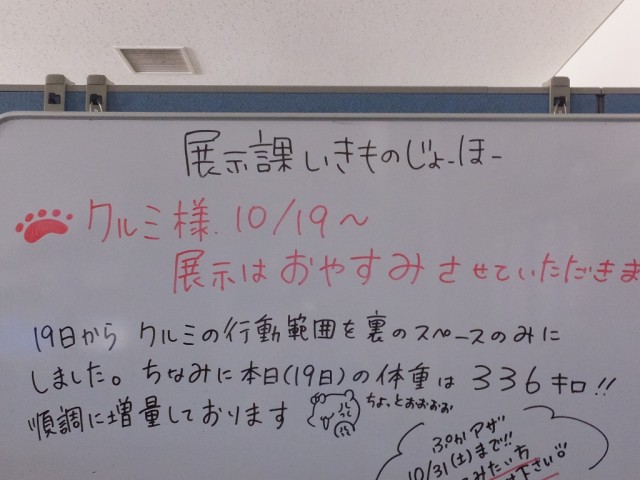 展示課いきものじょーほー
クルミ様. 10/19~
展示はおやすみさせていただきま
19日から クルミの行動範囲を裏のスペースのみに
しました。ちなみに本日(19日)の体重は 336キロ!!
順調に増量しております
ちょっとおおおお
アザ
10/31(土)まで!!
みたい方
下さい